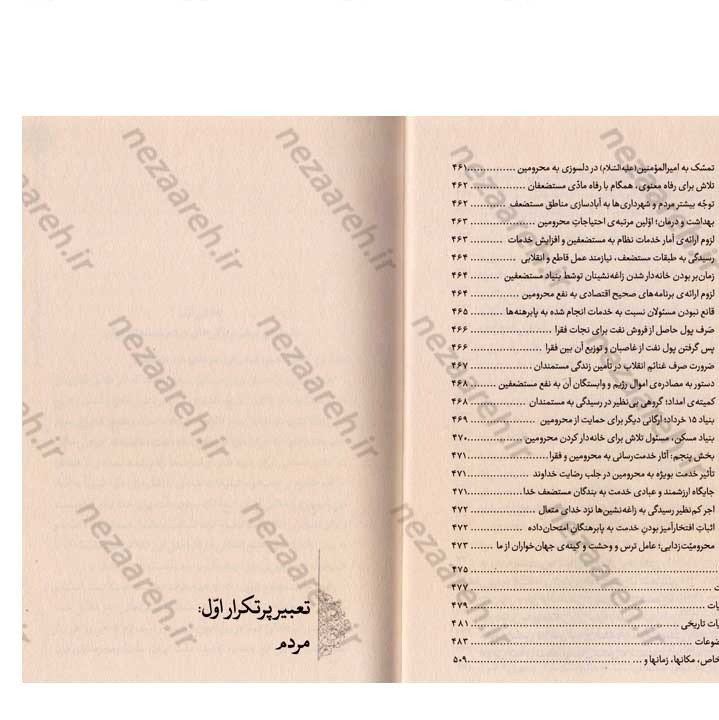 تمسّک به امیرالمؤمنین(علیه‌السّلام) در دلسوزی به محرومین ................ ۴۶۱
تلاش برای رفاه معنوی، همگام با رفاه مادّی مستضعفان ................. ۴۶۲
توجّه بیشتر مردم و شهرداری‌ها به آبادسازی مناطق مستضعف .......... ۴۶۲
بهداشت و درمان؛ اوّلین مرتبه‌ی احتیاجاتِ محرومین ................... ۴۶۳
لزوم ارائه‌ی آمار خدمات نظام به مستضعفین و افزایش خدمات .......... ۴۶۳
رسیدگی به طبقات مستضعف، نیازمند عمل قاطع و انقلابی ............... ۴۶۴
زمان‌بر بودن خانه‌دار شدن زاغه‌نشینان توسّط بنیاد مستضعفین ......... ۴۶۴
لزوم ارائه‌ی برنامه‌های صحیح اقتصادی به نفع محرومین ................ ۴۶۴
قانع نبودن مسئولان نسبت به خدمات انجام شده به پابرهنه‌ها ........... ۴۶۵
صَرف پول حاصل از فروش نفت برای نجات فقرا ........................ ۴۶۶
پس گرفتن پول نفت از غاصبان و توزیع آن بین فقرا ..................... ۴۶۶
ضرورت صرف غنائم انقلاب در تأمین زندگی مستمندان .................. ۴۶۷
دستور به مصادره‌ی اموال رژیم و وابستگان آن به نفع مستضعفین ........ ۴۶۸
کمیته‌ی امداد؛ گروهی بی‌نظیر در رسیدگی به مستمندان ................. ۴۶۸
بنیاد ۱۵ خرداد؛ ارگانی دیگر برای حمایت از محرومین ................... ۴۶۹
بنیاد مسکن، مسئول تلاش برای خانه‌دار کردن محرومین ................. ۴۷۰
بخش پنجم: آثار خدمت‌رسانی به محرومین و فقرا ....................... ۴۷۱
تأثیر خدمت بویژه به محرومین در جلب رضایت خداوند .................. ۴۷۱
جایگاه ارزشمند و عبادی خدمت به بندگان مستضعف خدا ................ ۴۷۱
اجر کم‌نظیر رسیدگی به زاغه‌نشین‌ها نزد خدای متعال ................... ۴۷۲
اثباتِ افتخارآمیز بودنِ خدمت به پابرهنگان امتحان‌داده ................. ۴۷۲
محرومیّت‌زدایی؛ عامل ترس و وحشت و کینه‌ی جهان‌خواران از ما ....... ۴۷۳
................ ۴۷۵
................ ۴۷۷
یات ................ ۴۷۹
یات تاریخی ................ ۴۸۱
ضوعات ................ ۴۸۳
خاص، مکانها، زمانها و ... ................ ۵۰۹
تعبیر پرتکرار اوّل:
مردم
nezaareh.ir
nezaareh.ir
nezaareh.ir
nezaareh.ir
nezaareh.ir
nezaareh.ir
nezaareh.ir
nezaareh.ir